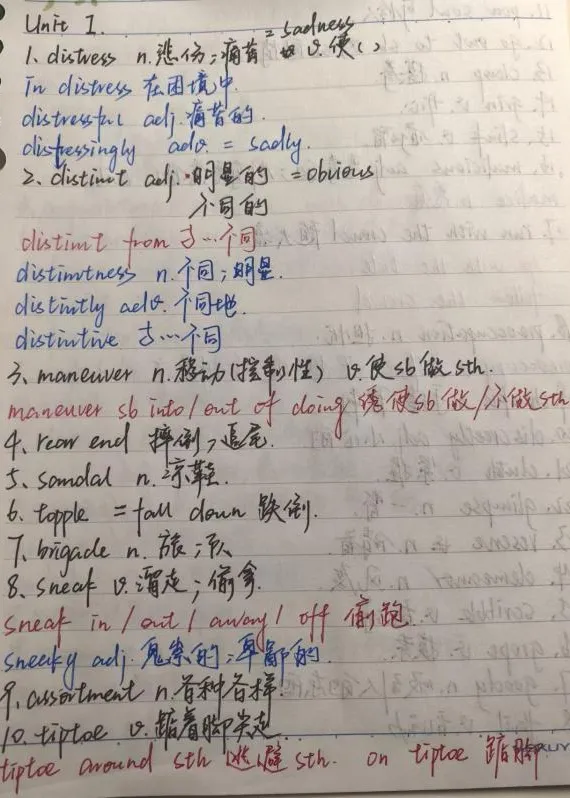 Unit 1.
= sadness
1、distress n.悲伤;痛苦 v.使( )
In distress 在困境中.
distressful adj.痛苦的.
distressingly adv. = sadly.
2、distinct adj.明显的 = obvious
不同的
distinct from 与…不同
distinctness n.不同;明显.
distinctly adv.不同地.
distinctive 与…不同
3、maneuver n.移动(控制性) v.使sb做sth.
maneuver sb into/out of doing 诱使sb做/不做sth
4、rear end 摔倒,追尾.
5、sandal n.凉鞋.
6、topple = fall down 跌倒.
7、brigade n.旅;队
8、sneak v.溜走;偷拿
sneak in/out/away/off 偷跑
sneaky adj.鬼祟的;卑鄙的.
9、assortment n.各种各样.
10、tiptoe v.踮着脚尖走.
tiptoe around sth 逃避sth. on tiptoe 踮脚